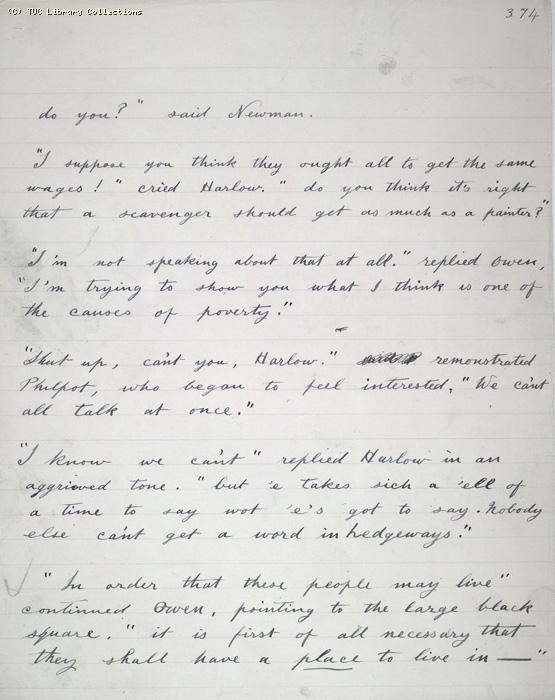 (C) TUC Library Collections
374
do you?" said Newman.
"I suppose you think they ought all to get the same
wages!" cried Harlow. "do you think it's right
that a scavenger should get as much as a painter?"
"I'm not speaking about that at all." replied Owen,
"I'm trying to show you what I think is one of
the causes of poverty."
"Shut up, can't you, Harlow." remonstrated
Philpot, who began to feel interested, "We can't
all talk at once."
"I know we can't" replied Harlow in an
aggrieved tone. "but 'e takes sich a 'ell of
a time to say wot 'e's got to say. Nobody
else can't get a word in hedgeways."
"In order that these people may live"
continued Owen, pointing to the large black
square. "it is first of all necessary that
they shall have a place to live in —"